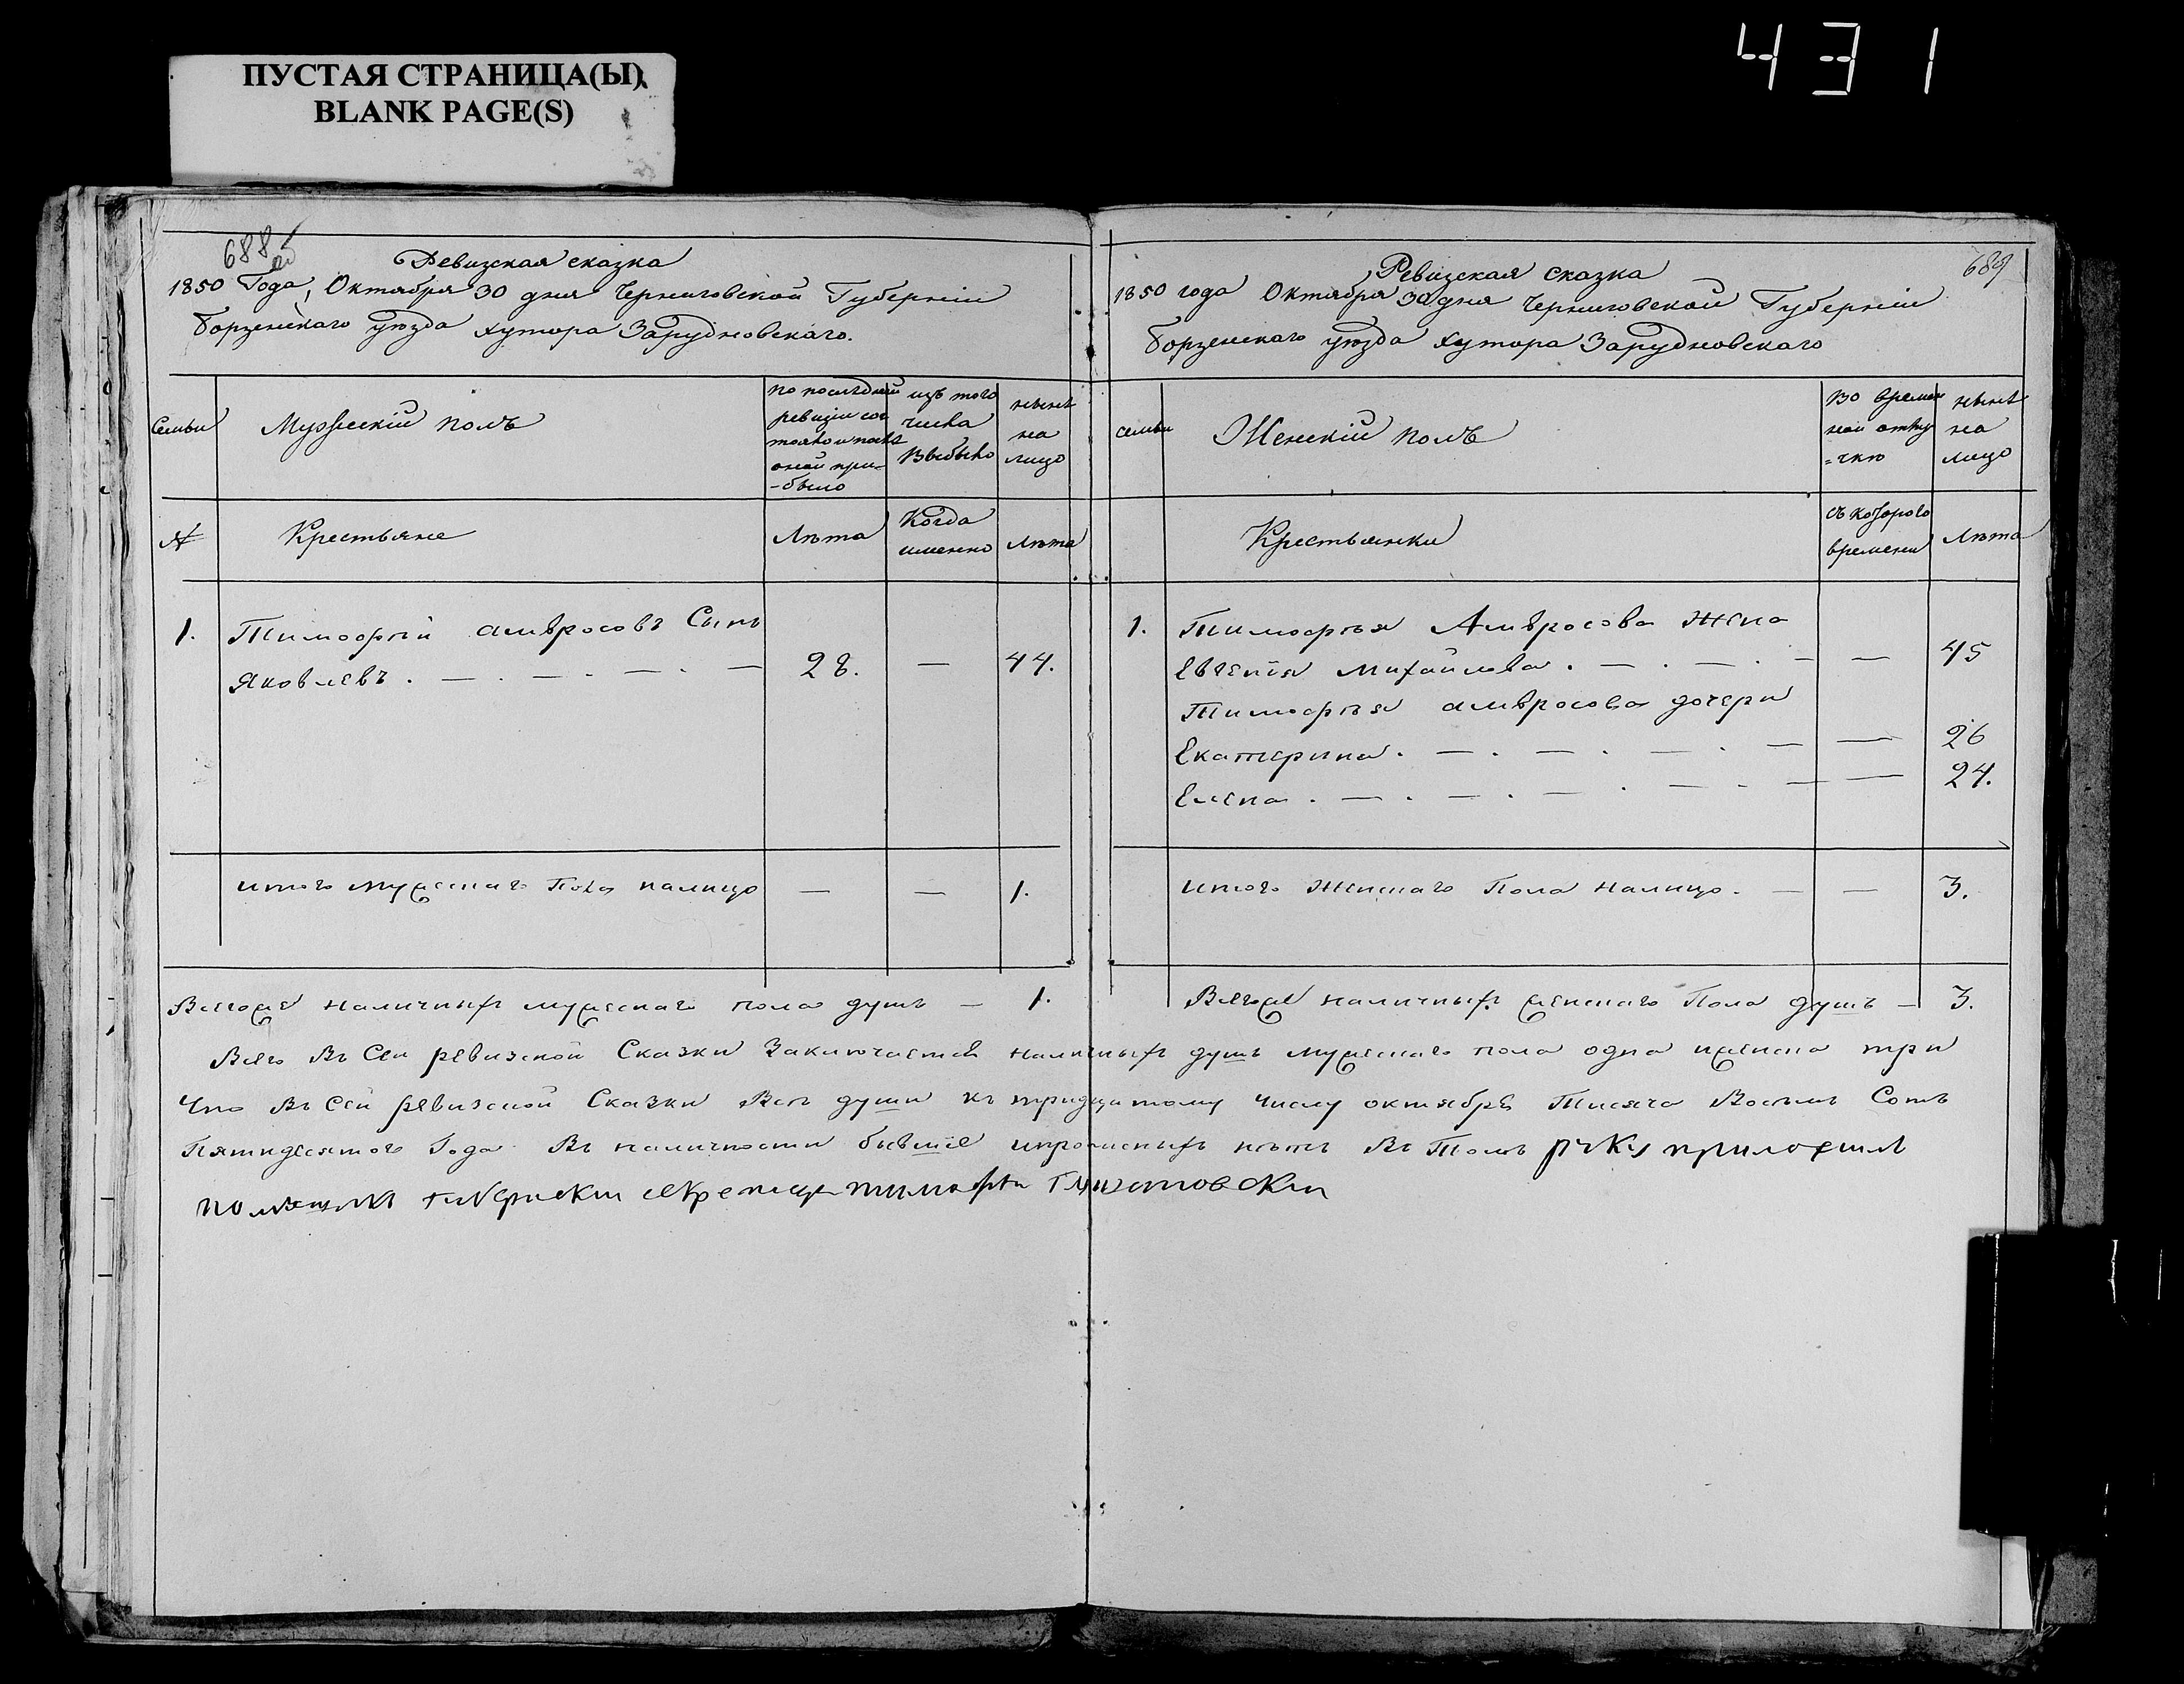 431
ПУСТАЯ СТРАНИЦА(Ы)
BLANK PAGE(S)
688 об
Ревизская сказка
1850 Года, Октября 30 дня Черниговской Губерніи
Борзенскаго уѣзда хутора Зарудновскаго.
Семьи
Мужескій полъ
По последней ревизіи состояло и после оной при-было
изъ того числа выбыло
нынѣ на лицо
№
Крестьяне
Лѣта
Когда именно
Лѣта
1. Тимофѣй амвросовъ Сынъ
Яковлевъ . — . — . — . — 28. — 44.
итого мужескаго Пола налицо — — 1.
Всегоже наличныхъ мужескаго пола душъ — 1.
689
Ревизская сказка
1850 года Октября 30 дня Черниговской Губерніи
Борзенскаго уѣзда хутора Зарудновскаго
семьи
Женскій полъ
Во времен ной отлу =чкѣ
нынѣ на лицо
Крестьянки
съ котораго времени
Лѣта
1. Тимофѣя Амвросова Жена
Евгенія Михайлова . — . — . — — 45
Тимофѣя амвросова дочери
Екатерина . — . — . — . — — 26
Елена . — . — . — . — . — — 24.
итого Женскаго Пола налицо . — — 3.
Всегоже наличныхъ женскаго Пола душъ — 3.
Всего Въ Сей ревизской Сказки Заключается наличныхъ душъ мужескаго пола одна иженска три
Что Въ Сей ревизской Сказки Всѣ души къ тридцатому числу октября Тисяча Восемь Сотъ
Пятидесятого Года Въ наличности бывшіе ипрописныхъ нѣтъ Въ Томъ руку приложилъ
помещикъ губернски секретарь тимофеи